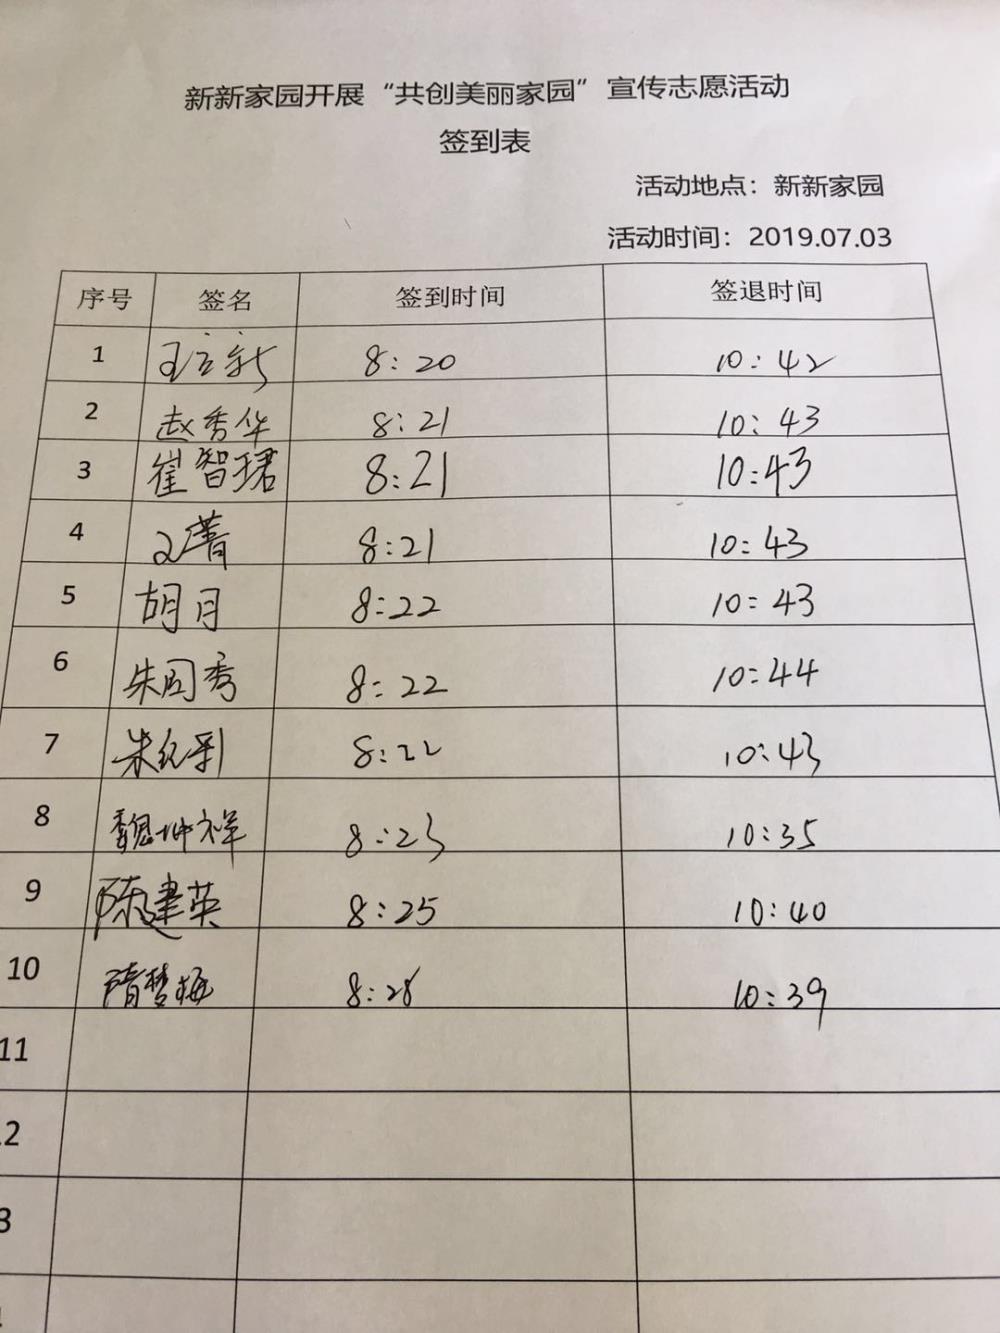 新新家园开展“共创美丽家园”宣传志愿活动
签到表
活动地点：新新家园
活动时间：2019.07.03
序号 签名 签到时间 签退时间
1 8:20 10:42
2 赵秀华 8:21 10:43
3 崔智珺 8:21 10:43
4 8:21 10:43
5 胡月 8:22 10:43
6 朱国秀 8:22 10:44
7 8:22 10:43
8 魏坤祥 8:23 10:35
9 陈建英 8:25 10:40
10 隋梦梅 8:28 10:39
11